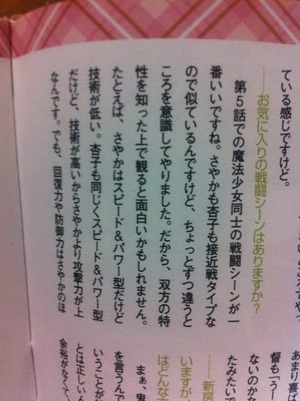 ている感じですけど。
――お気に入りの戦闘シーンはありますか?
第5話での魔法少女同士の戦闘シーンが一
番いいですね。さやかも杏子も接近戦タイプな
ので似ているんですけど、ちょっとずつ違うと
ころを意識してやりました。だから、双方の特
性を知った上で観ると面白いかもしれません。
たとえば、さやかはスピード&パワー型だけど
技術が低い。杏子も同じくスピード&パワー型
だけど、技術が高いからさやかより攻撃力が上
なんです。でも、回復力や防御力はさやかのほ
あまり喜ば
督も「うー
ないのかな
たみたいで
――新房
いますが、
はどんな
まぁ、鬼
を言うんで
いうことが
とは正しい
余裕がなくて、